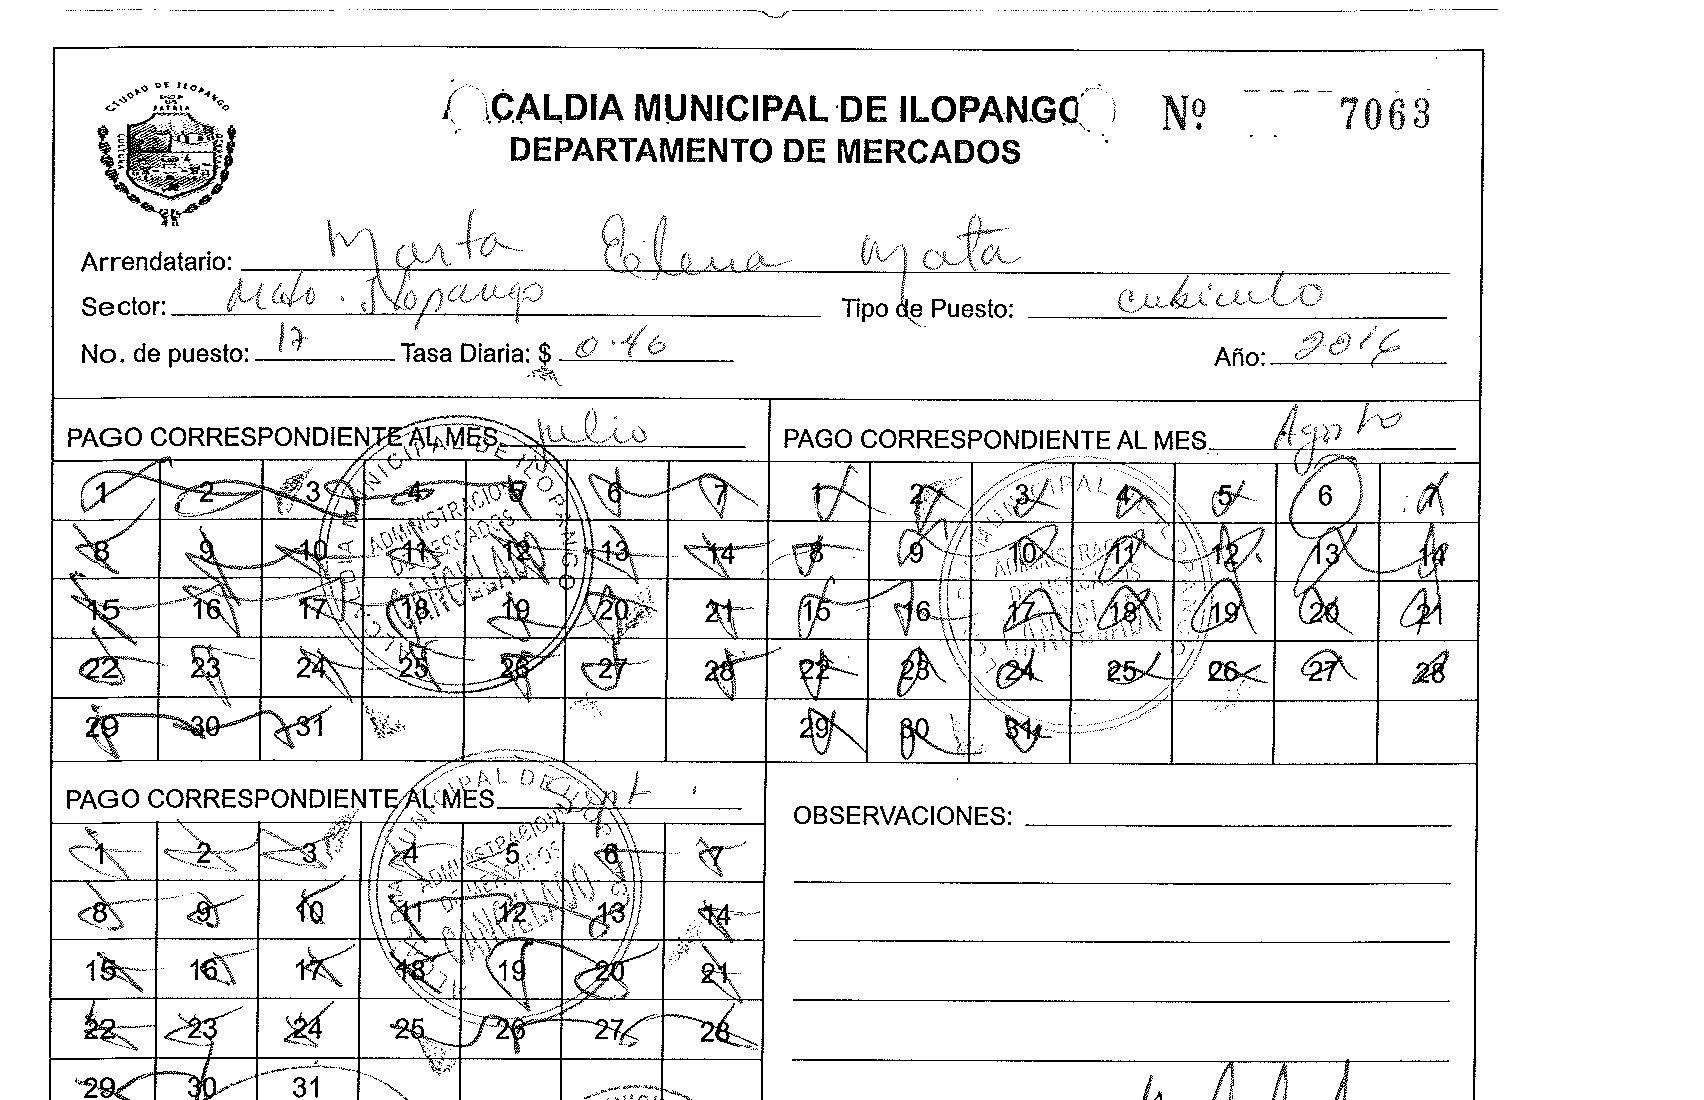 CIUDAD DE ILOPANGO
PATRIA
CULTURA
CALDIA MUNICIPAL DE ILOPANGO
Nº 7063
DEPARTAMENTO DE MERCADOS
Arrendatario: Marta Elena Mata
Sector: Ilopango Tipo de Puesto: cubiculo
No. de puesto: 17 Tasa Diaria: $ 0.40 Año: 2016
PAGO CORRESPONDIENTE AL MES. Julio
1 2 3 4 5 6 7
8 9 10 11 12 13 14
15 16 17 18 19 20 21
22 23 24 25 26 27 28
29 30 31
MUNICIPAL DE ILOPANGO
ADMINISTRACION
DE MERCADOS
CANCELADO
PAGO CORRESPONDIENTE AL MES. Agosto
1 2 3 4 5 6 7
8 9 10 11 12 13 14
15 16 17 18 19 20 21
22 23 24 25 26 27 28
29 30 31
MUNICIPAL
PAGO CORRESPONDIENTE AL MES Sept
1 2 3 4 5 6 7
8 9 10 11 12 13 14
15 16 17 18 19 20 21
22 23 24 25 26 27 28
29 30 31
MUNICIPAL DE
ADMINISTRACION
DE MERCADOS
CANCELADO
OBSERVACIONES: